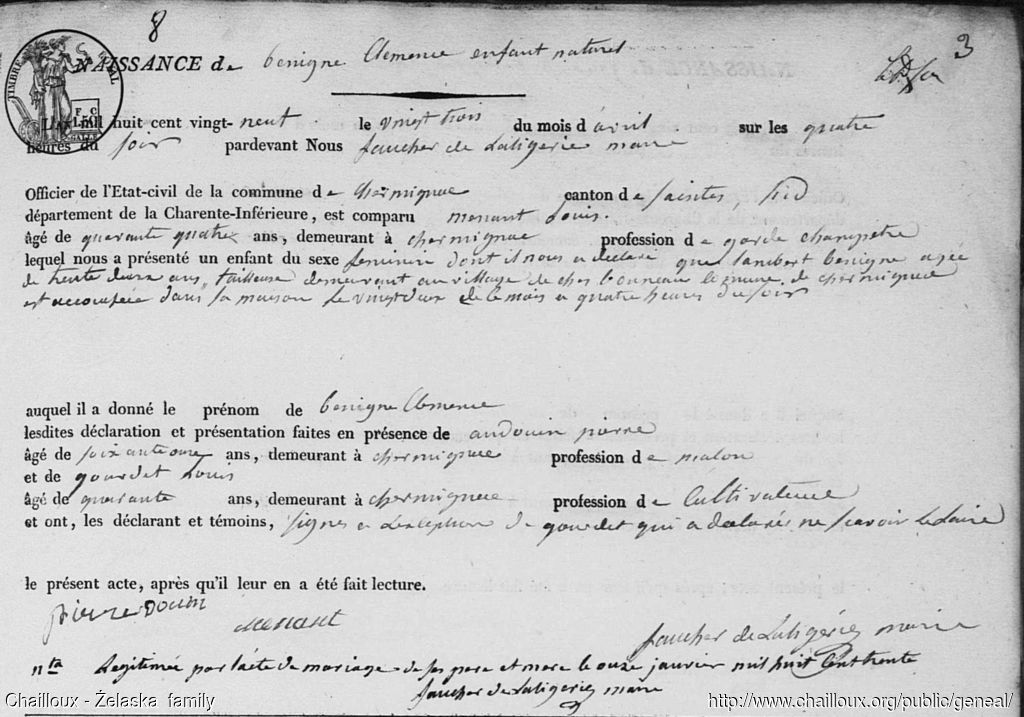 8
3
NAISSANCE de benigne Clemence enfant naturel
L'an mil huit cent vingt-neuf le vingt trois du mois d'avril sur les quatre
heures du soir pardevant Nous faucher de Laligerie maire
Officier de l'Etat-civil de la commune de chermignac canton de saintes sud
département de la Charente-Inférieure, est comparu menant Louis.
âgé de quarante quatre ans, demeurant à chermignac profession de garde champetre
lequel nous a présenté un enfant du sexe feminin dont il nous a declaré que lambert benigne agée
de trente deux ans, tailleuse demeurant au village de ches bonneau commune de chermignac
est accouchée dans sa maison le vingt deux de le mois a quatre heures du soir
auquel il a donné le prénom de benigne Clemence
lesdites déclaration et présentation faites en présence de audouin pierre
âgé de soixante ans, demeurant à chermignac profession de maçon
et de gourdet Louis
âgé de quarante ans, demeurant à chermignac profession de Cultivateur
et ont, les déclarant et témoins, signés a L'exception de gourdet qui a declarés ne scavoir le faire
le présent acte, après qu'il leur en a été fait lecture.
pierre Douin
menant
faucher de Laligerie maire
nta Legitimée par l'acte de mariage de ses pere et mere le onze janvier mil huit Cent trente
faucher de Laligerie maire
Chailloux - Żelaska family
http://www.chailloux.org/public/geneal/